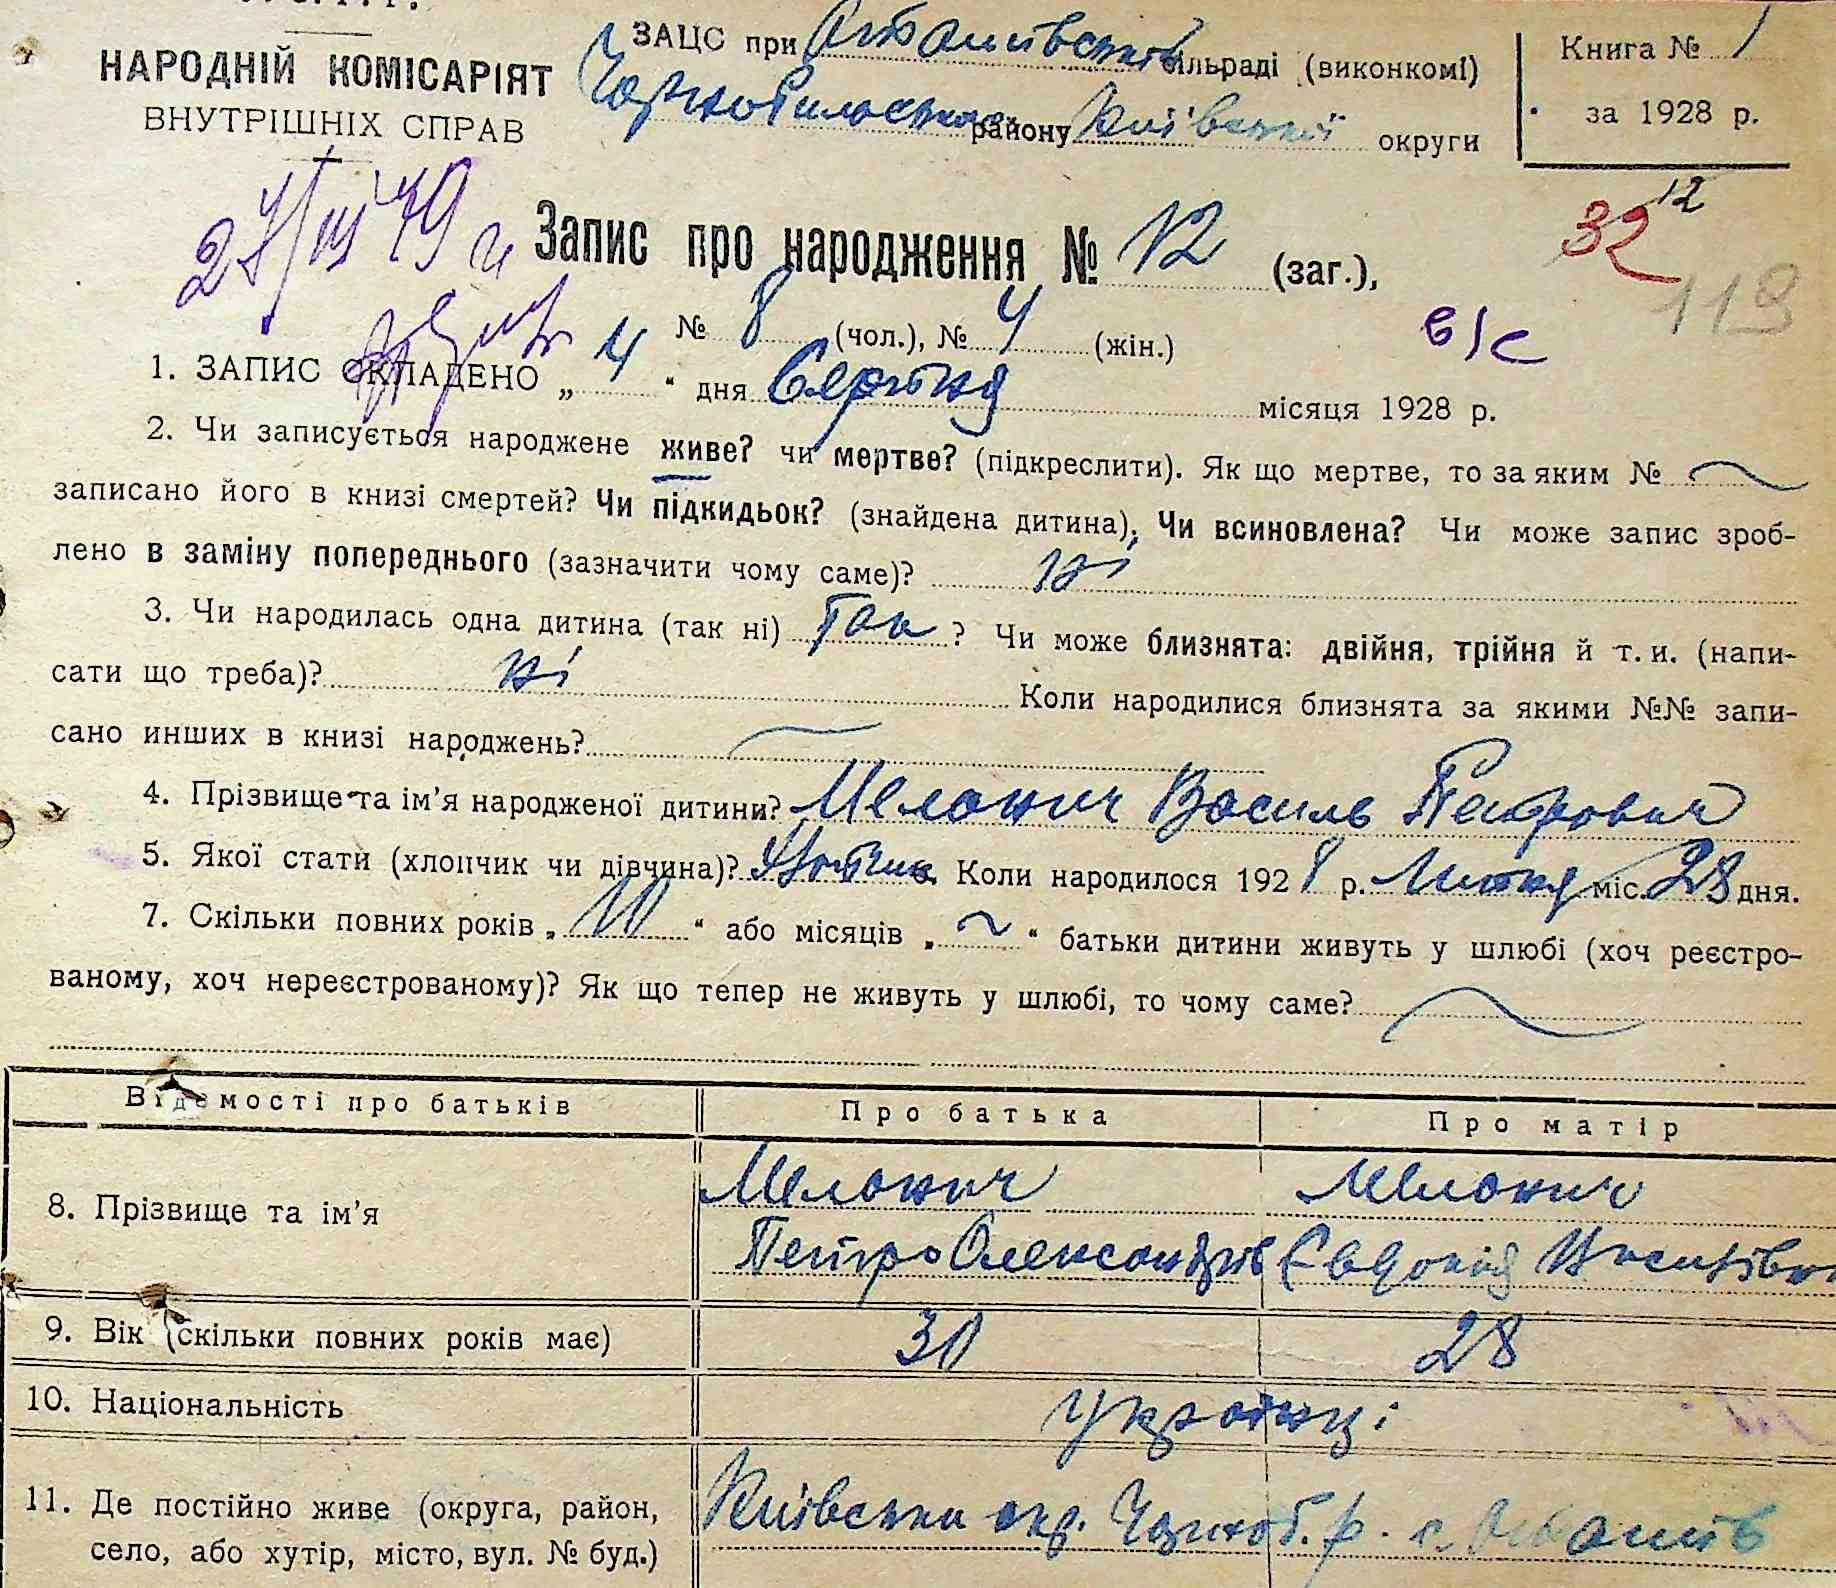 НАРОДНІЙ КОМІСАРІЯТ
ВНУТРІШНІХ СПРАВ
ЗАЦС при сільраді (виконкомі)
Чорнобильського району Київської округи
Книга № 1
за 1928 р.
Запис про народження № 12 (заг.),
32 12
119
№ 8 (чол.), № 4 (жін.)
в/с
1. ЗАПИС СКЛАДЕНО „ 4 “ дня Серпня місяця 1928 р.
2. Чи записується народжене живе? чи мертве? (підкреслити). Як що мертве, то за яким №
записано його в книзі смертей? Чи підкидьок? (знайдена дитина), Чи всиновлена? Чи може запис зроб-
лено в заміну попереднього (зазначити чому саме)? ні
3. Чи народилась одна дитина (так ні) Так ? Чи може близнята: двійня, трійня й т. и. (напи-
сати що треба)? ні Коли народилися близнята за якими №№ запи-
сано инших в книзі народжень?
4. Прізвище та ім’я народженої дитини? Меланич Василь Петрович
5. Якої стати (хлопчик чи дівчина)? Коли народилося 1928 р. Липня міс. 28 дня.
7. Скільки повних років „ 10 “ або місяців „ ~ “ батьки дитини живуть у шлюбі (хоч реєстро-
ваному, хоч нереєстрованому)? Як що тепер не живуть у шлюбі, то чому саме?
Відомості про батьків Про батька Про матір
8. Прізвище та ім’я Меланич Меланич
Петро Олександрів Євдокія
9. Вік (скільки повних років має) 30 28
10. Національність Українці
11. Де постійно живе (округа, район,
село, або хутір, місто, вул. № буд.)
Київська окр. Чорноб. р. с.